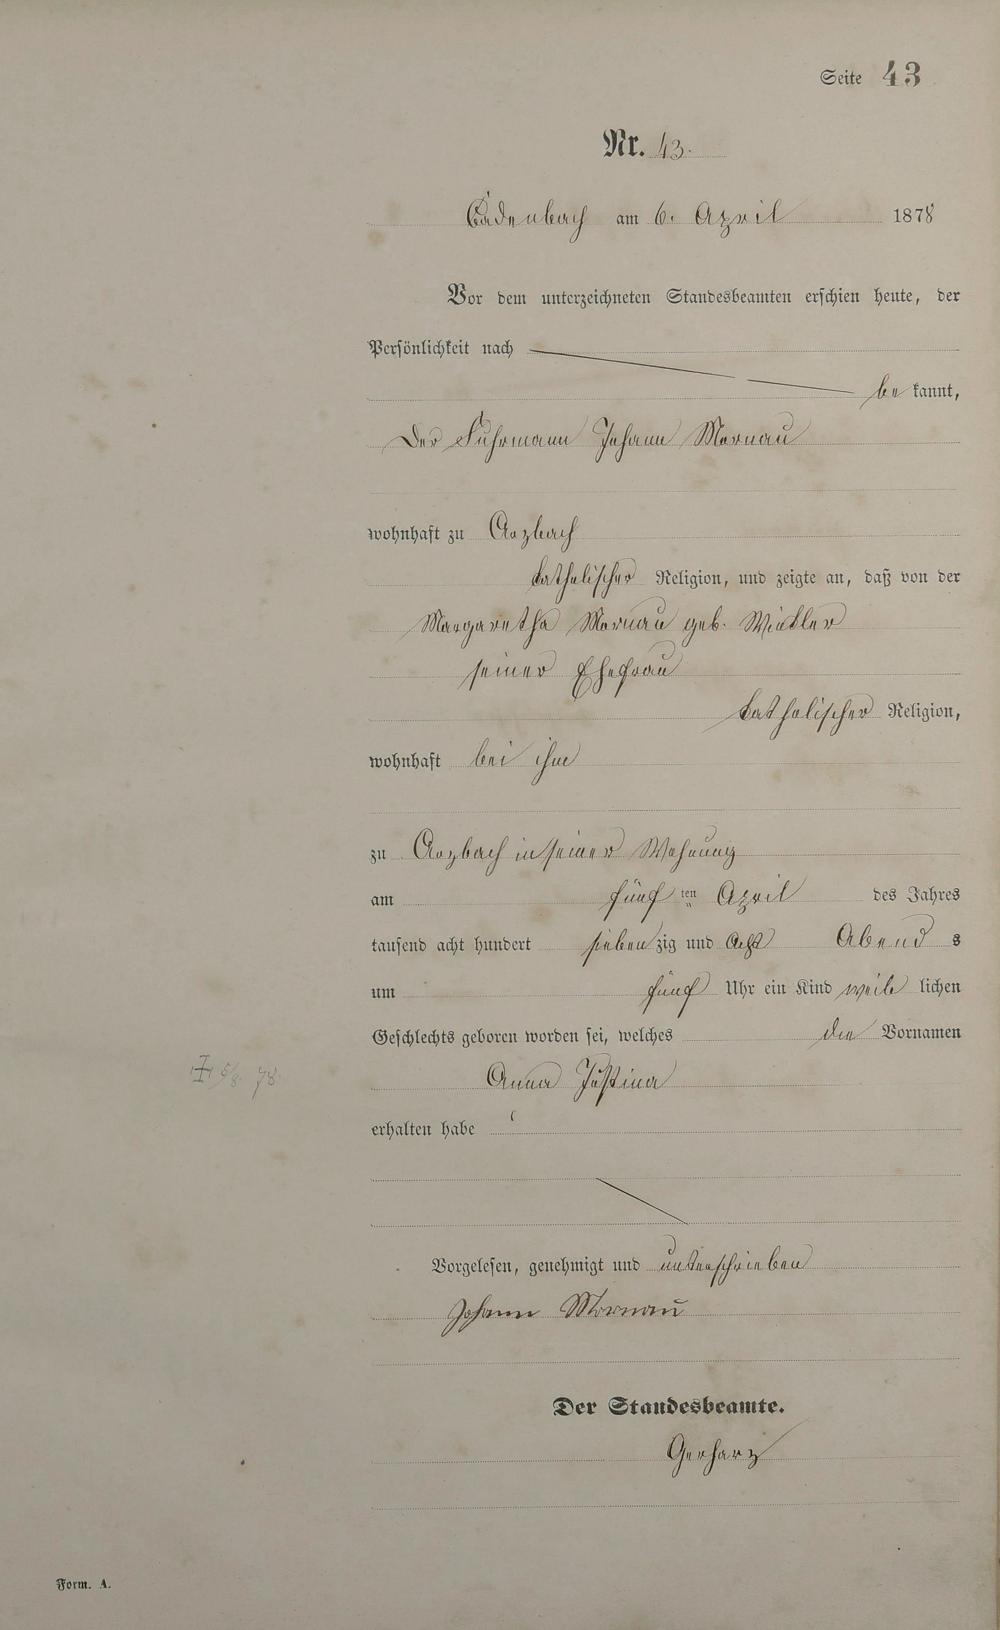 Seite 43
Nr. 43.
Cadenbach am 6. April 1878
Vor dem unterzeichneten Standesbeamten erschien heute, der
Persönlichkeit nach
be kannt,
der Fuhrmann Johann Mornau
wohnhaft zu Arzbach
katholischer Religion, und zeigte an, daß von der
Margaretha Mornau geb. Winkler
seiner Ehefrau
katholischer Religion,
wohnhaft bei ihm
zu Arzbach in seiner Wohnung
am fünf ten April des Jahres
tausend acht hundert sieben zig und acht Abend s
um fünf Uhr ein Kind weib lichen
Geschlechts geboren worden sei, welches die Vornamen
Anna Justina
erhalten habe
Vorgelesen, genehmigt und unterschrieben
Johann Mornau
Der Standesbeamte.
Gerharz
Form. A.